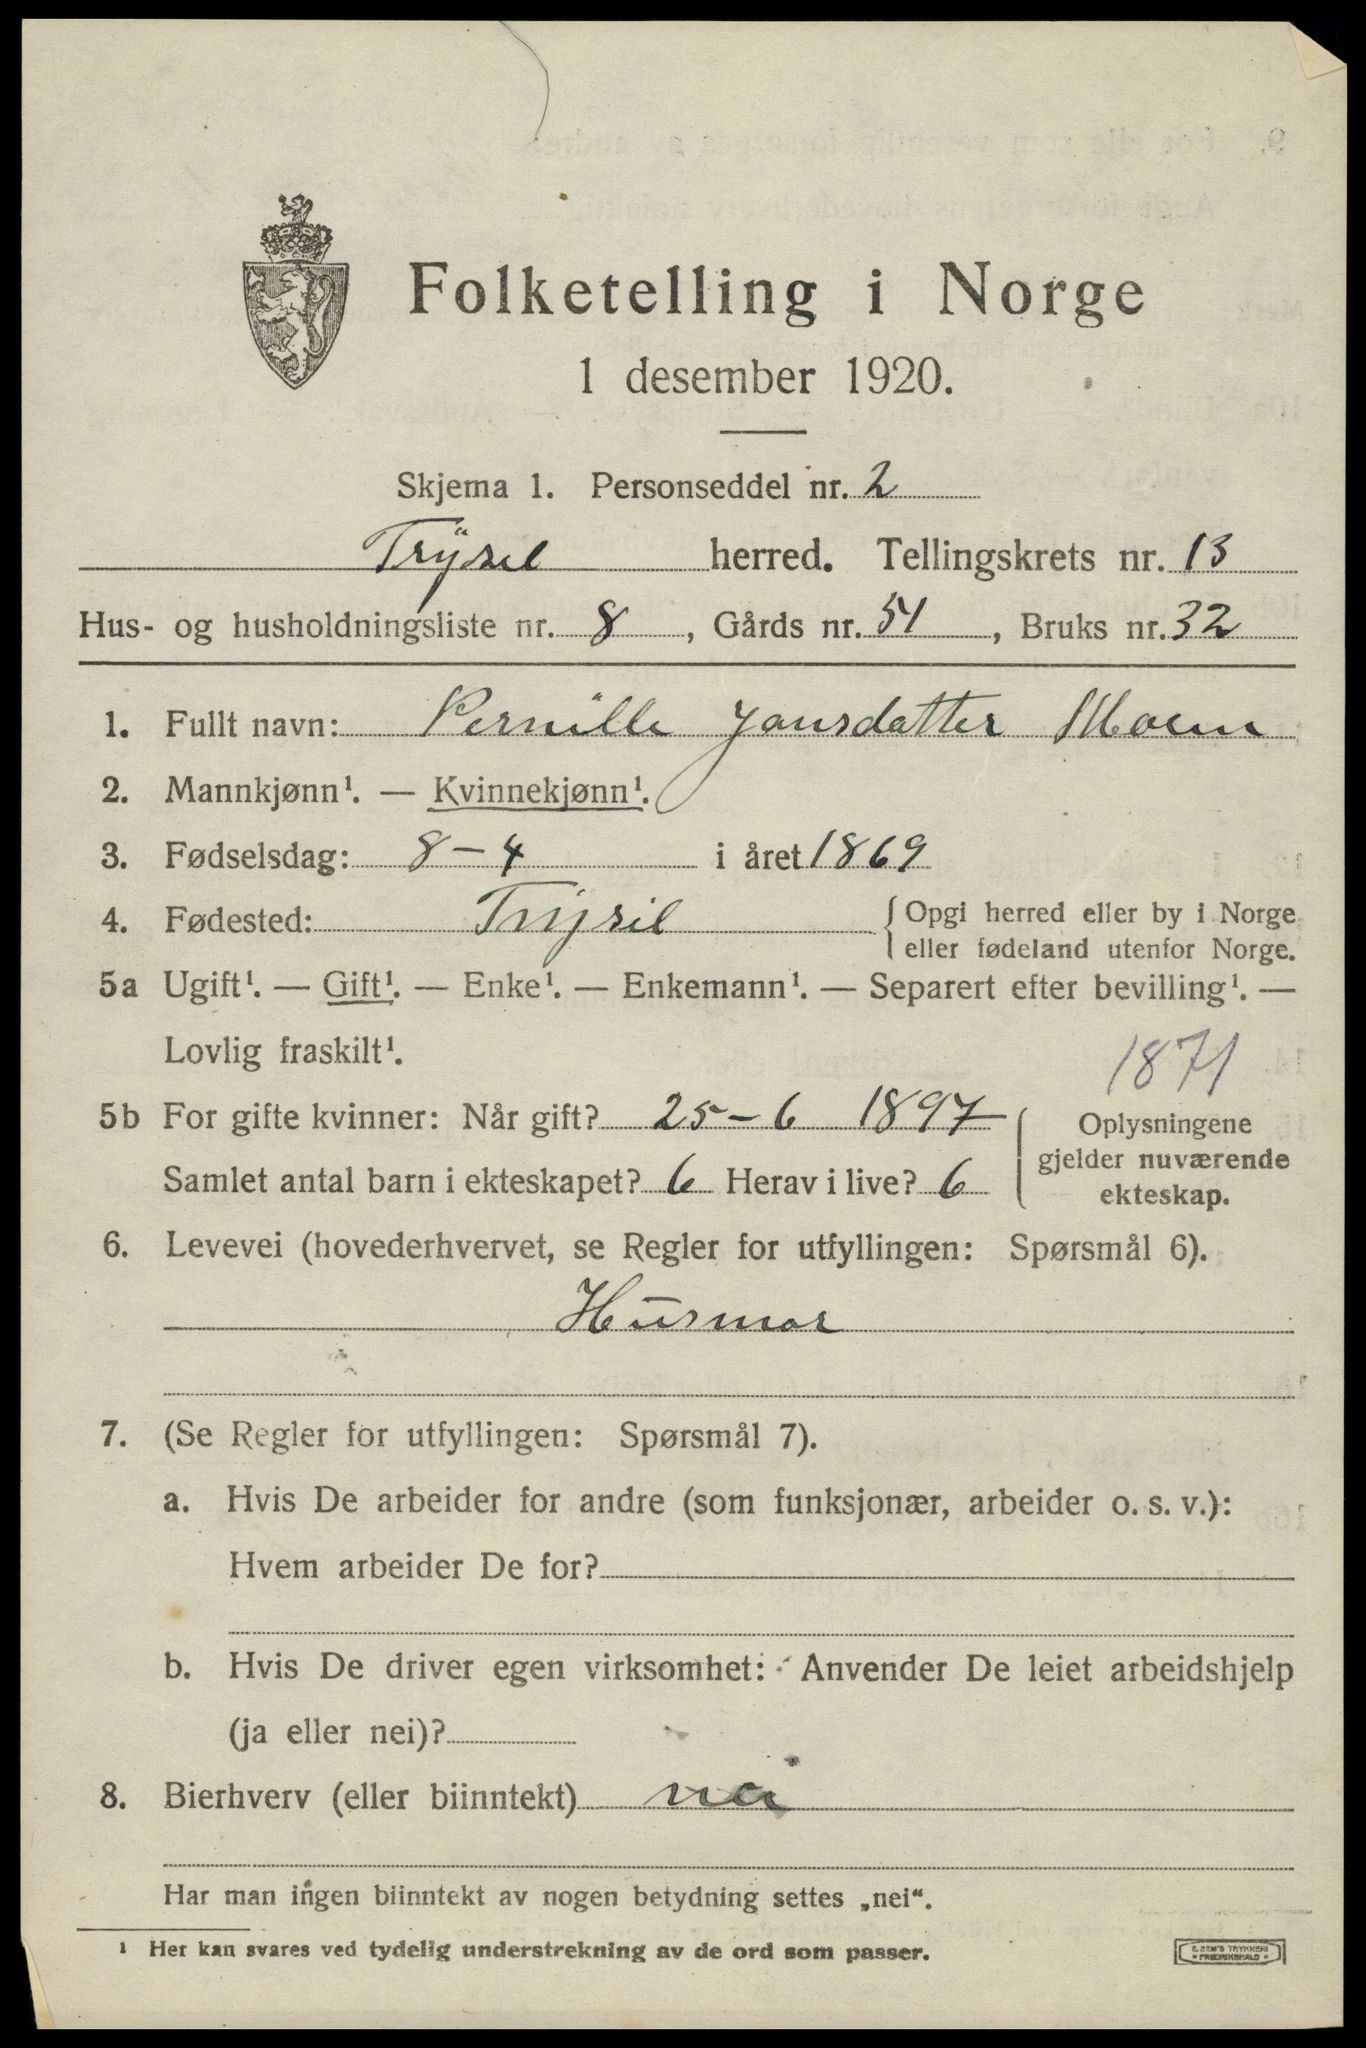 Folketelling i Norge
1 desember 1920.
Skjema 1. Personseddel nr. 2
Trysil herred. Tellingskrets nr. 13
Hus- og husholdningsliste nr. 8, Gårds nr. 54, Bruks nr. 32
1. Fullt navn: Pernille Jonsdatter Moen
2. Mannkjønn¹. — Kvinnekjønn¹.
3. Fødselsdag: 8-4 i året 1869
4. Fødested: Trysil { Opgi herred eller by i Norge
eller fødeland utenfor Norge.
5a Ugift¹. — Gift¹. — Enke¹. — Enkemann¹. — Separert efter bevilling¹. —
Lovlig fraskilt¹.
1871
5b For gifte kvinner: Når gift? 25-6 1897
Samlet antal barn i ekteskapet? 6 Herav i live? 6
Oplysningene
gjelder nuværende
ekteskap.
6. Levevei (hovederhvervet, se Regler for utfyllingen: Spørsmål 6).
Husmor
7. (Se Regler for utfyllingen: Spørsmål 7).
a. Hvis De arbeider for andre (som funksjonær, arbeider o. s. v.):
Hvem arbeider De for?
b. Hvis De driver egen virksomhet: Anvender De leiet arbeidshjelp
(ja eller nei)?
8. Bierhverv (eller biinntekt) nei
Har man ingen biinntekt av nogen betydning settes „nei“.
¹ Her kan svares ved tydelig understrekning av de ord som passer.
E. SEM'S TRYKKERI
FREDRIKSHALD